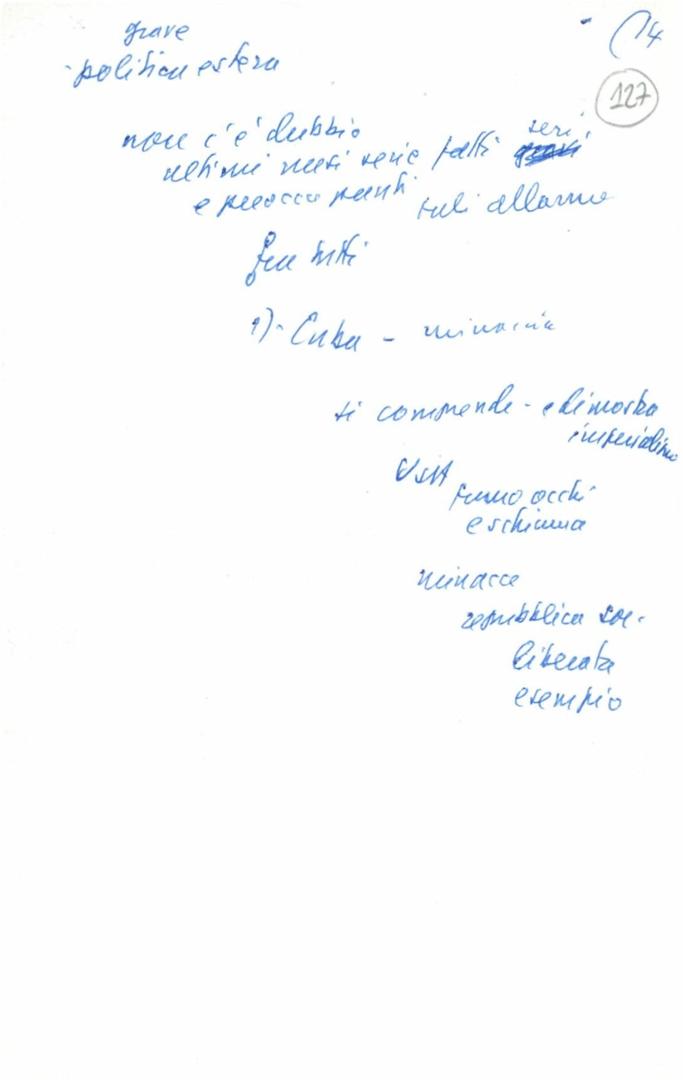 (14
127
grave
- politica estera
non c'è dubbio
ultimi mesi serie fatti seri
e preoccupanti tali allarme
fra tutti
1) - Cuba - minaccia
si comprende - e dimostra
imperialismo
USA
fumo occhi
e schiuma
minacce
repubblica soc.
liberata
esempio